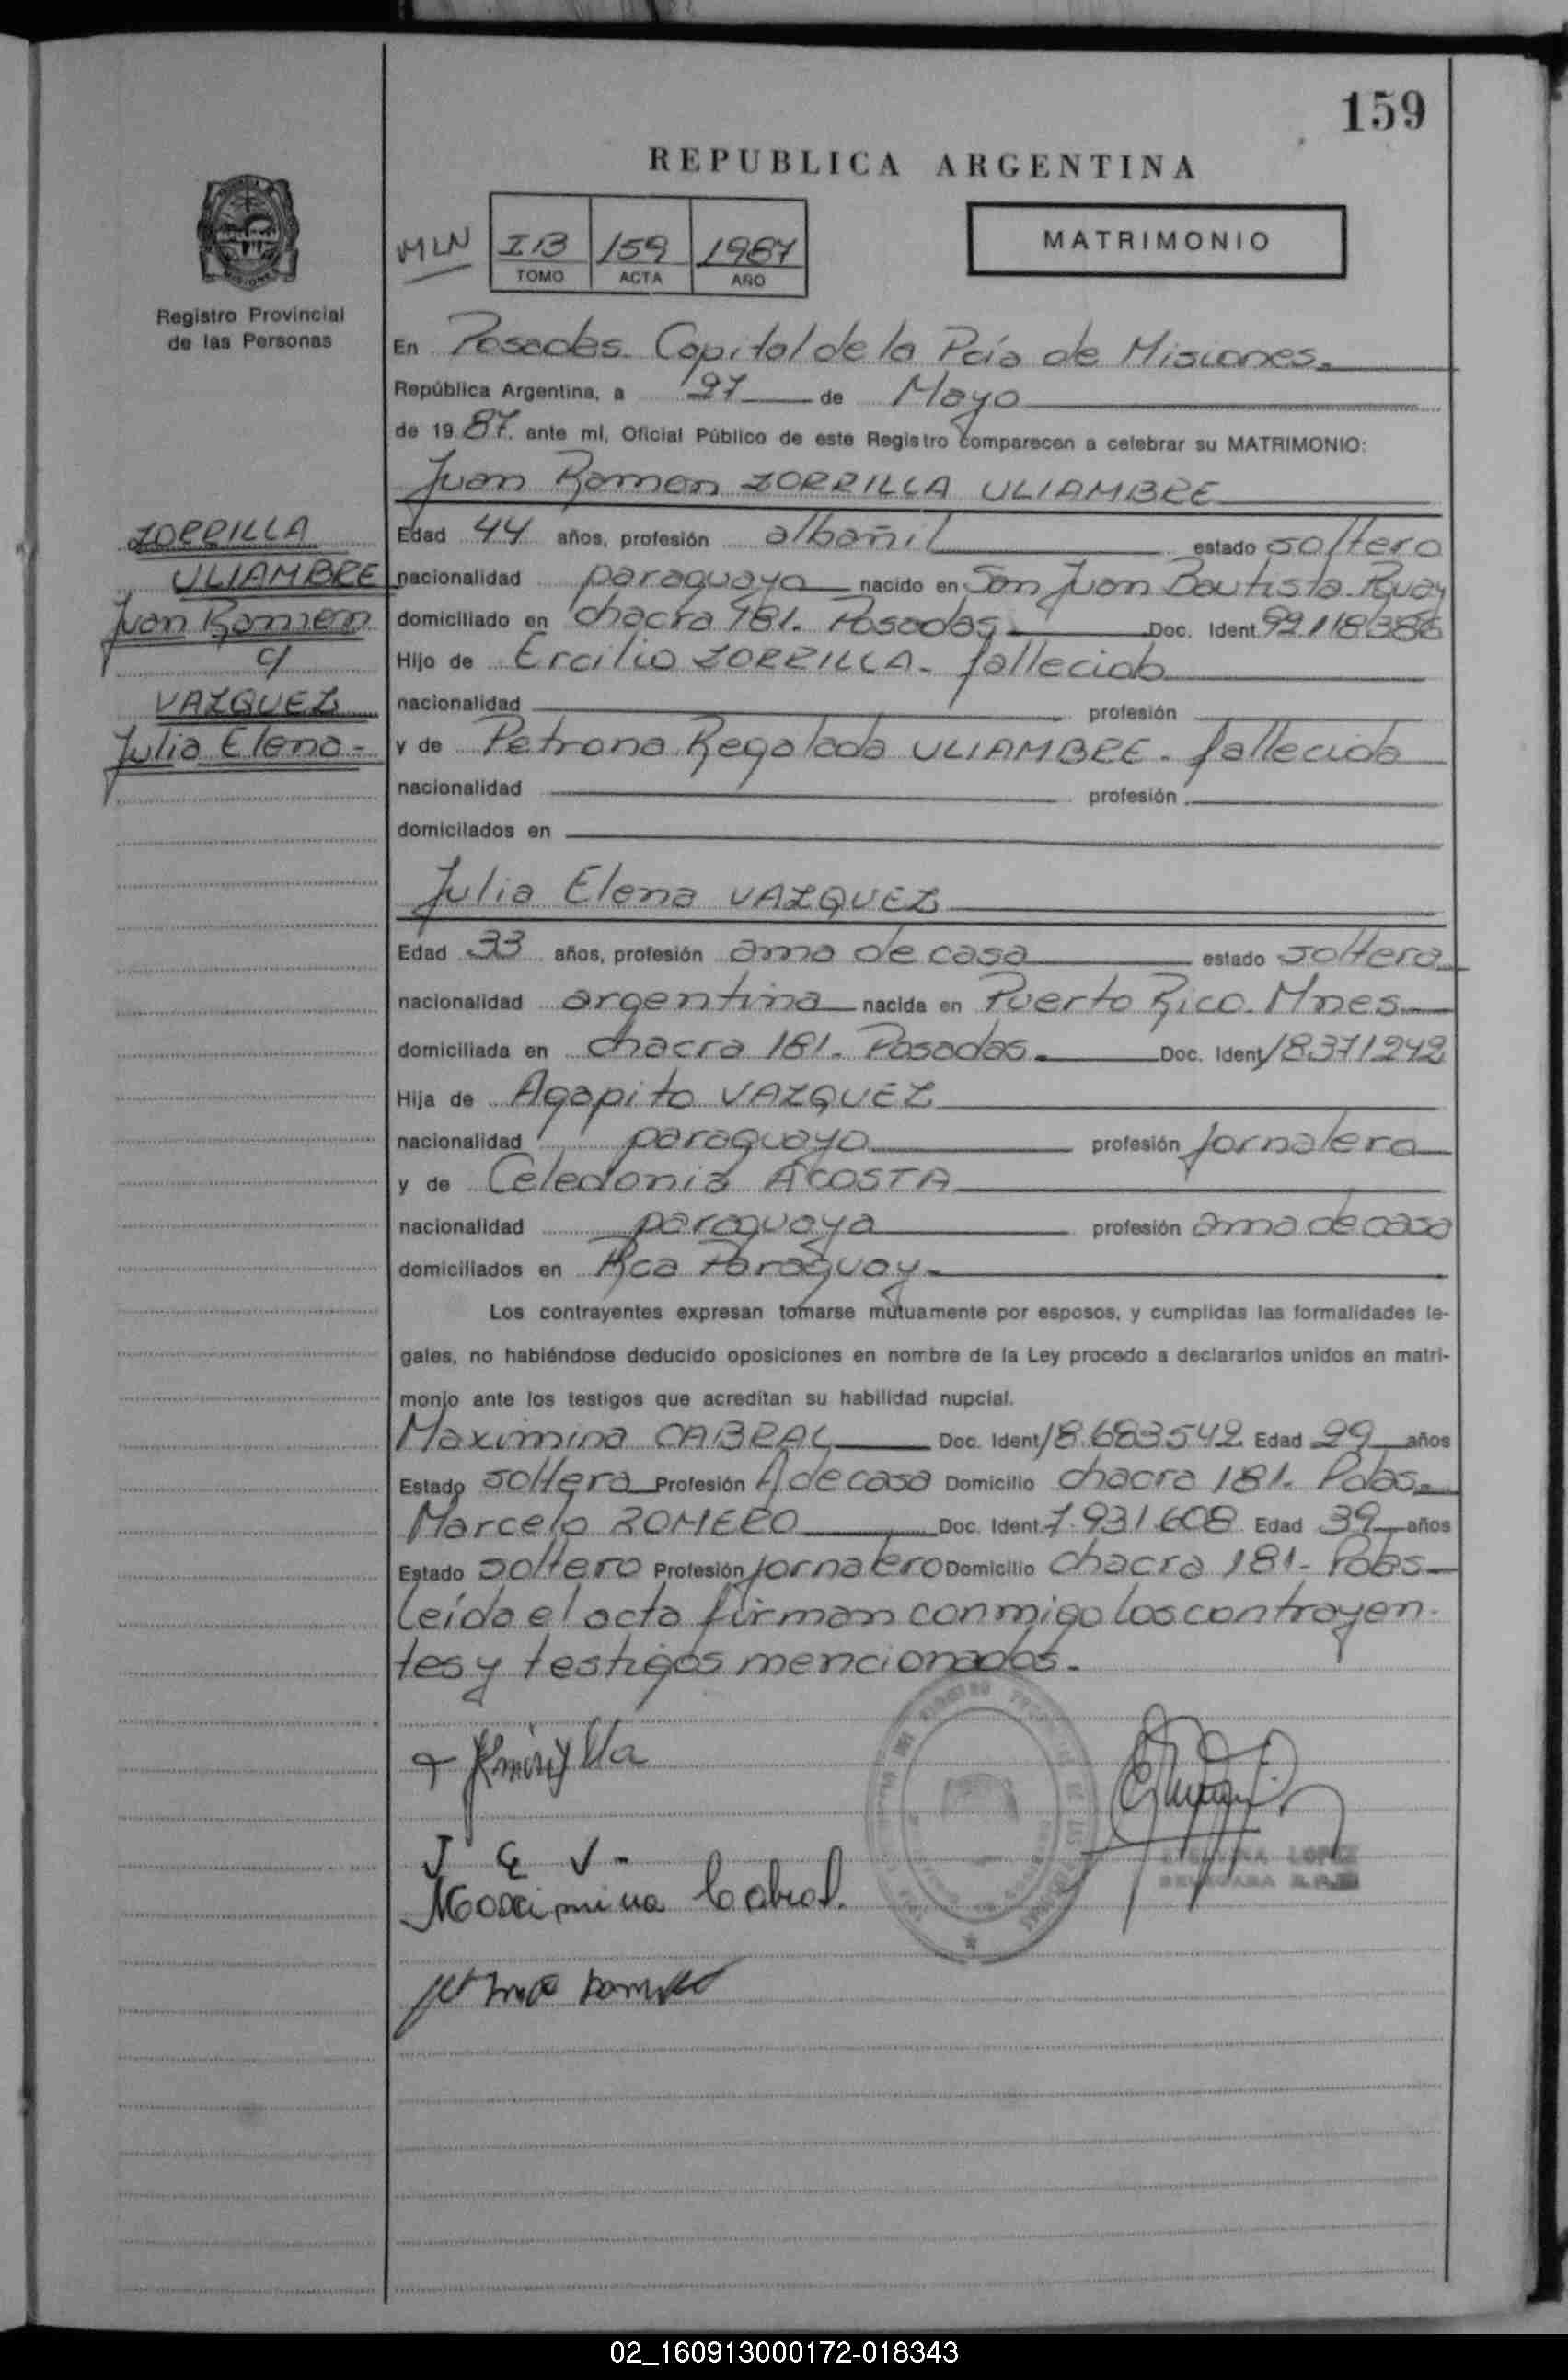 159
REPUBLICA ARGENTINA
MLN
IB 159 1987
TOMO ACTA AÑO
MATRIMONIO
Registro Provincial
de las Personas
En Posadas. Capital de la Pcia de Misiones.
República Argentina, a 27 de Mayo
de 19 87. ante mí, Oficial Público de este Registro comparecen a celebrar su MATRIMONIO:
Juan Ramon ZORRILLA ULIAMBRE
ZORRILLA
ULIAMBRE
Juan Ramon
c/
VAZQUEZ
Julia Elena-
Edad 44 años, profesión albañil estado soltero
nacionalidad paraguaya nacido en San Juan Bautista. Pguay
domiciliado en chacra 181. Posadas Doc. Ident. 92.118.386
Hijo de Ercilio ZORRILLA- fallecido
nacionalidad profesión
y de Petrona Regalada ULIAMBRE- fallecida
nacionalidad profesión
domicilados en
Julia Elena VAZQUEZ
Edad 33 años, profesión ama de casa estado soltera
nacionalidad argentina nacida en Puerto Rico. Mnes
domiciliada en chacra 181. Posadas. Doc. Ident. 18371242
Hija de Agapito VAZQUEZ
nacionalidad paraguayo profesión jornalero
y de Celedonia ACOSTA
nacionalidad paraguaya profesión ama de casa
domiciliados en Rca Paraguay-
Los contrayentes expresan tomarse mútuamente por esposos, y cumplidas las formalidades le-
gales, no habiéndose deducido oposiciones en nombre de la Ley procedo a declararlos unidos en matri-
monio ante los testigos que acreditan su habilidad nupcial.
Maximina CABRAL Doc. Ident. 18.683.542 Edad 29 años
Estado soltera Profesión A de casa Domicilio chacra 181- Pdas.
Marcelo ROMERO Doc. Ident. 7.931.608 Edad 39 años
Estado soltero Profesión jornalero Domicilio chacra 181- Pdas-
Leída el acta firman conmigo los contrayen-
tes y testigos mencionados.
J E V-
Maximina Cabral.
LOPEZ
02_160913000172-018343